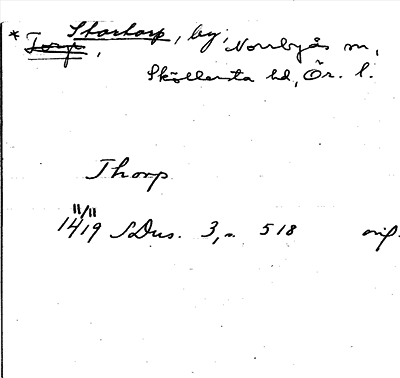 * Torp, Stortorp, by, Norrbyås sn,
Sköllersta hd, Ör. l.
Thorp
11/11
1419 SDns. 3, s. 518 orig.